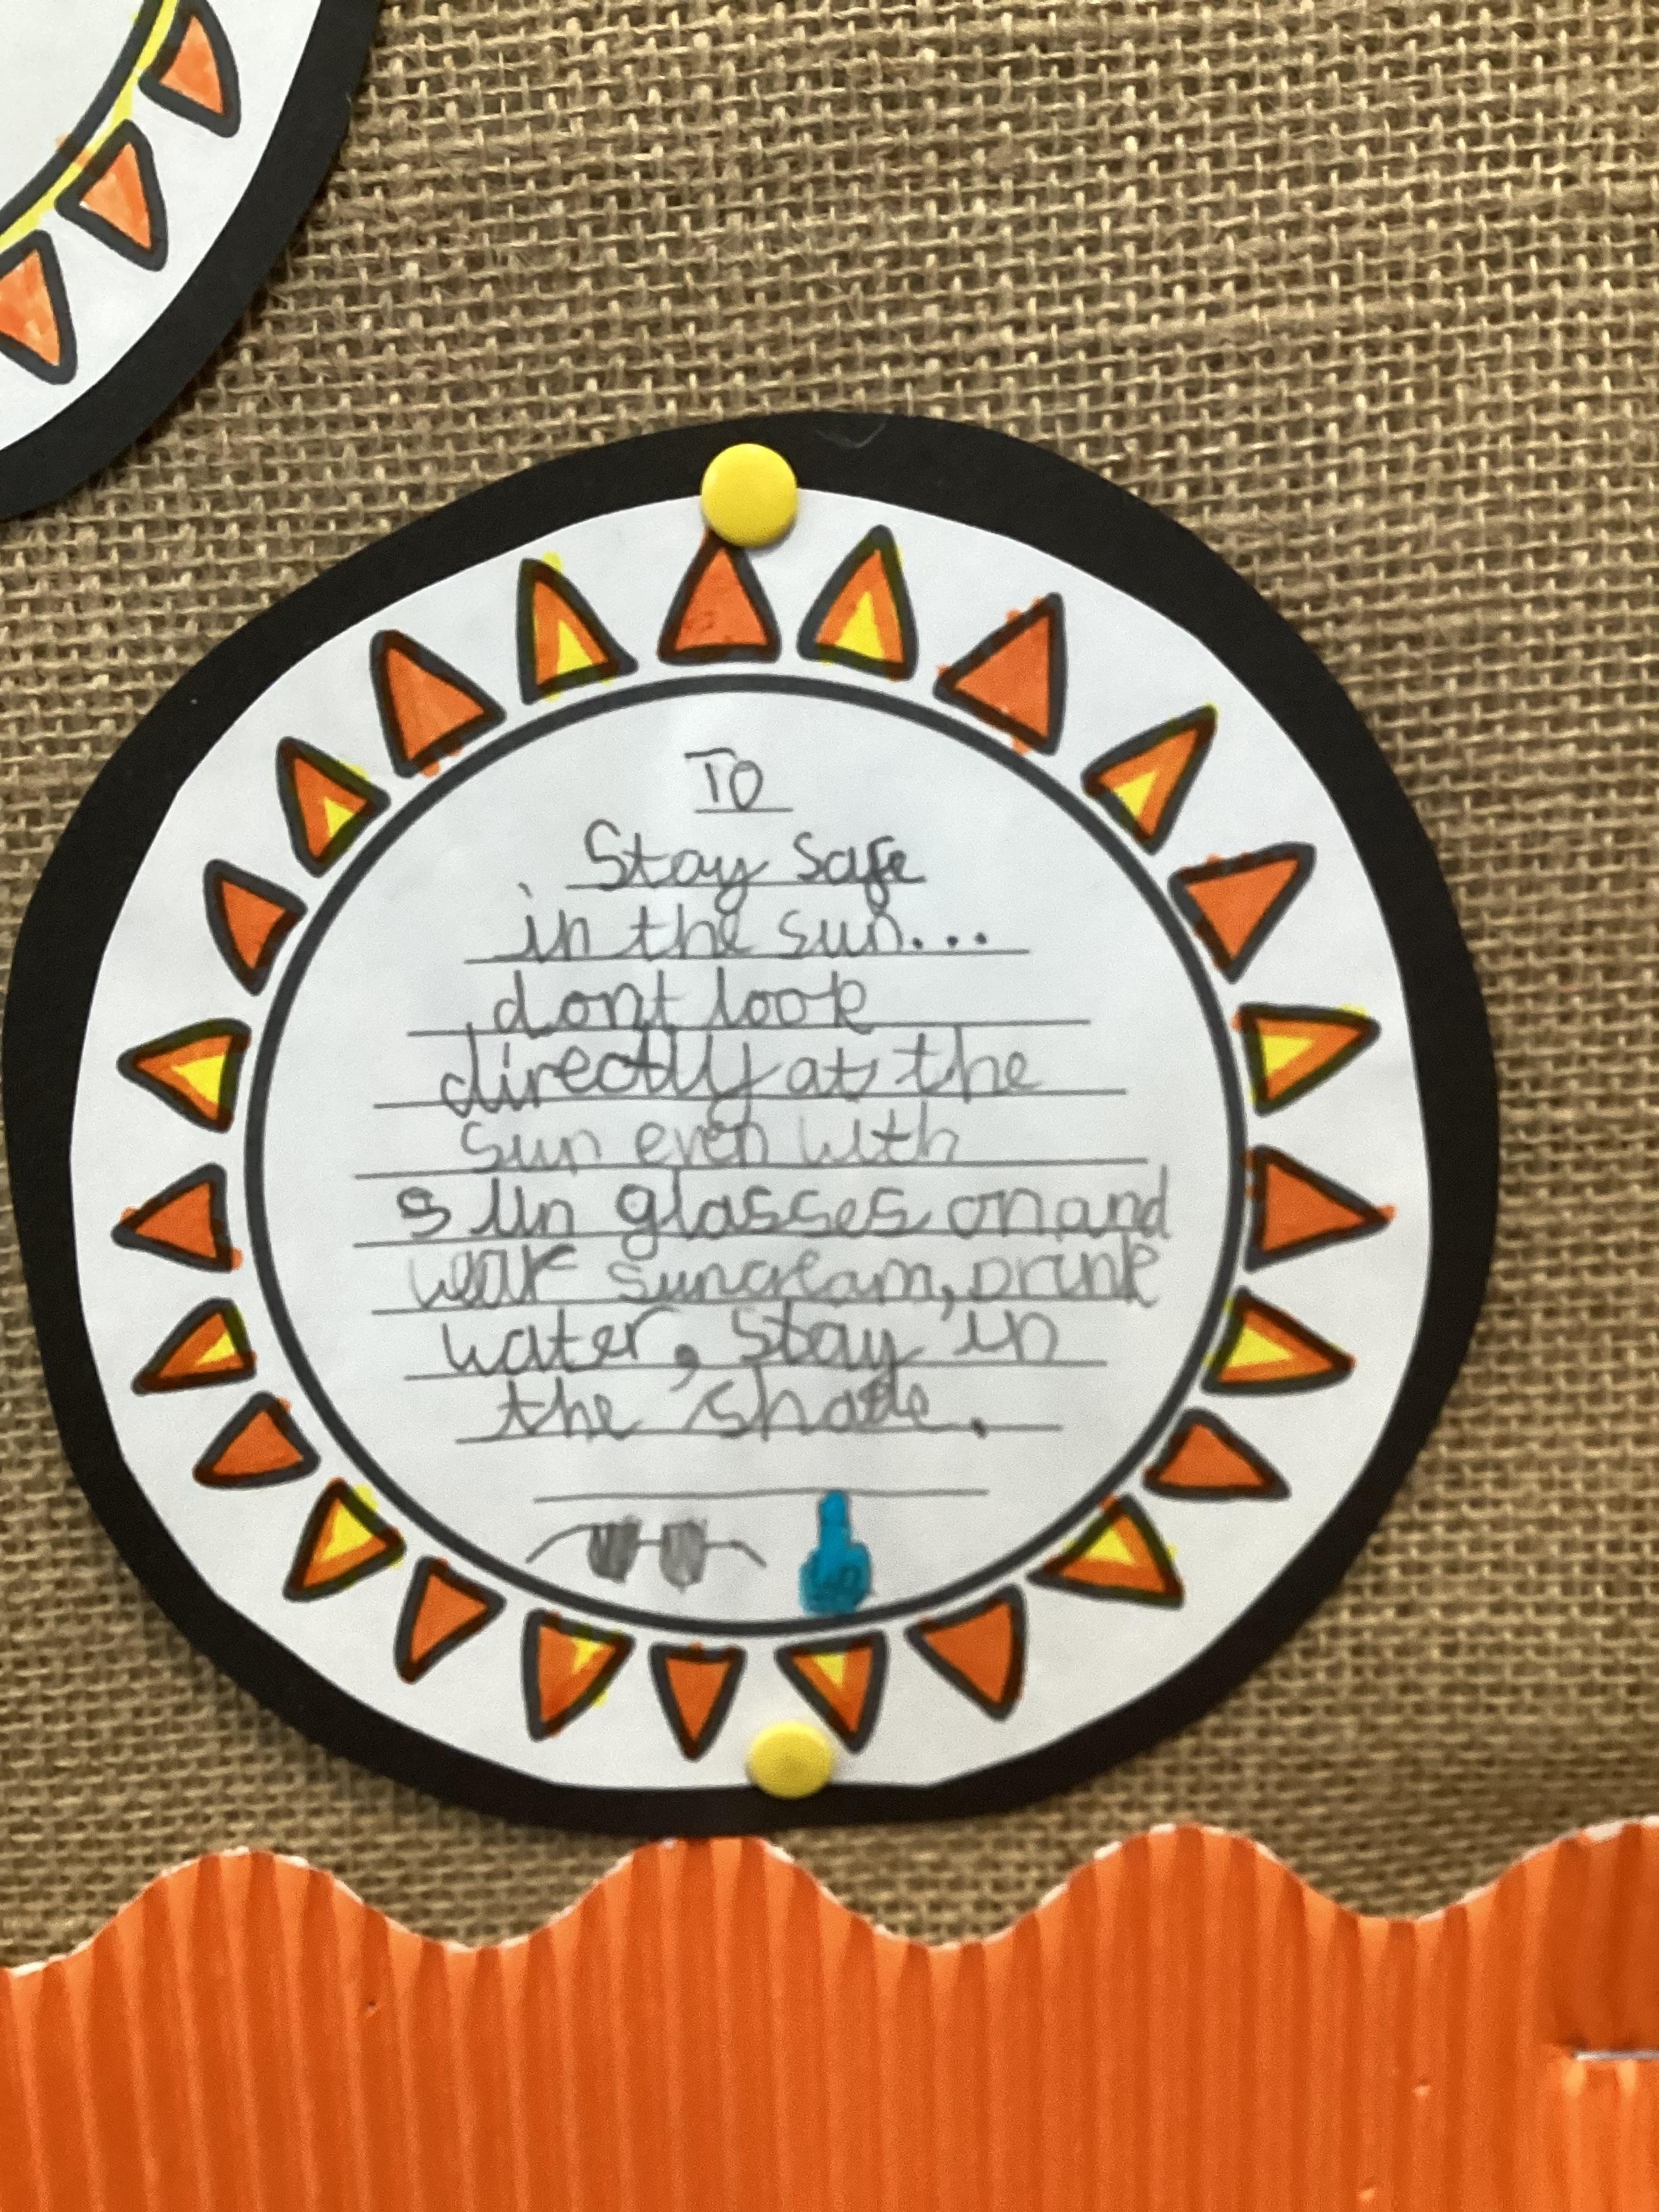 To
Stay safe
in the sun...
dont look
directlly at the
sun even with
sun glasses on and
wear suncream, Drink
water, stay in
the shade.